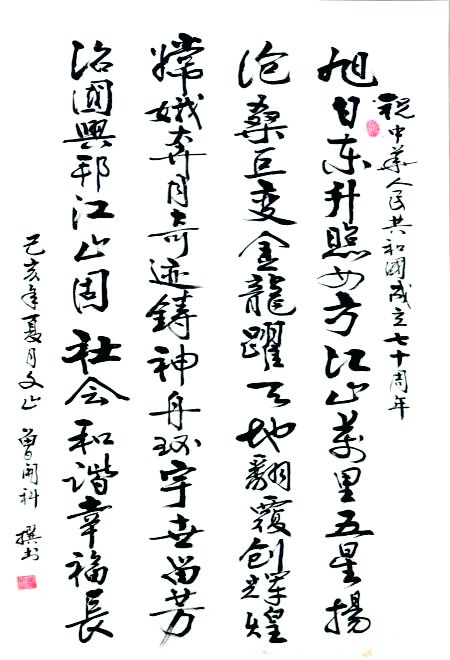 祝中華人民共和國成立七十周年
旭日东升照四方江山萬里五星揚
沧桑巨变金龍躍天地翻覆创辉煌
嫦娥奔月奇迹鑄神舟环宇世留芳
治國興邦江山固社会和谐幸福長
己亥年夏月文山曾開科撰书